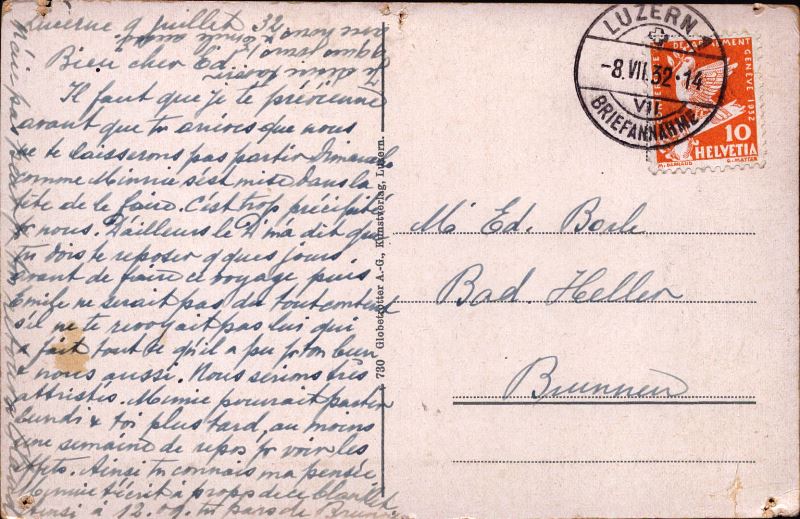 Lucerne 9 juillet 32
Bien cher Ed.
Il faut que je te prévienne
avant que tu arrives que nous
ne te laisserons pas partir Dimanche
comme Minnie s'est mise dans la
tête de le faire. C'est trop précipité
& nous. D'ailleurs le Dr m'a dit que
tu dois te reposer qques jours
avant de faire ce voyage puis
Emile ne serait pas du tout content
s'il ne te revoyait pas lui qui
a fait tout ce qu'il a pu pr ton bien
& nous aussi. Nous serions très
attristés. Minnie pourrait partir
lundi & toi plus tard, au moins
une semaine de repos pr voir les
effets. Ainsi tu connais ma pensée
Minnie t'écrit à propos de ce
Ainsi à 12.09 tu pars de Brunnen
730 Globetrotter A.-G., Kunstverlag, Luzern.
LUZERN 1
-8.VII.32-14
VII.
BRIEFANNAHME
DESARMEMENT GENÈVE 1932
10
HELVETIA
Mr Ed. Borle
Bad. Heller
Brunnen